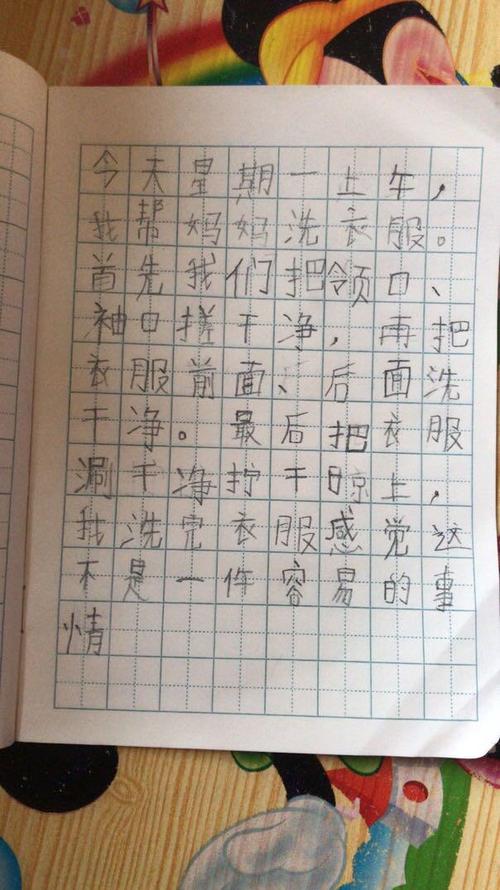 今天星期一上午，
我帮妈妈洗衣服。
首先我们把领口、
袖口搓干净，再把
衣服前面、后面洗
干净。最后把衣服
涮干净拧干晾上，
我洗完衣服感觉这
不是一件容易的事
情